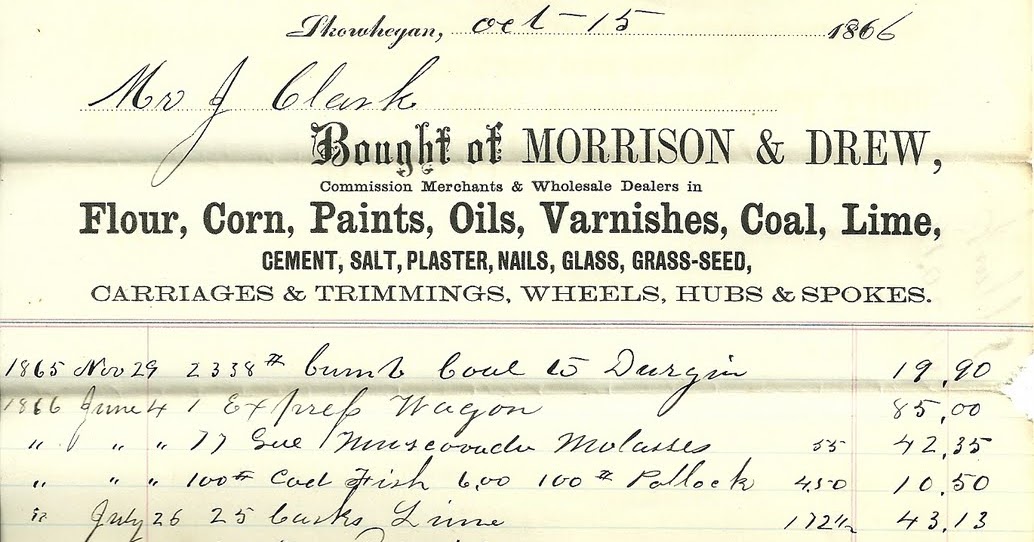 Skowhegan, Oct - 15 1866
Mr J Clark
Bought of MORRISON & DREW,
Commission Merchants & Wholesale Dealers in
Flour, Corn, Paints, Oils, Varnishes, Coal, Lime,
CEMENT, SALT, PLASTER, NAILS, GLASS, GRASS-SEED,
CARRIAGES & TRIMMINGS, WHEELS, HUBS & SPOKES.
1865 Nov 29 2338 # Cumb Coal to Durgin 19.90
1866 June 4 1 Express Wagon 85.00
" " " 77 Gal Muscovado Molasses 55 42.35
" " " 100 # Cod Fish 6.00 100 # Pollock 4.50 10.50
" July 26 25 Casks Lime 172½ 43.13